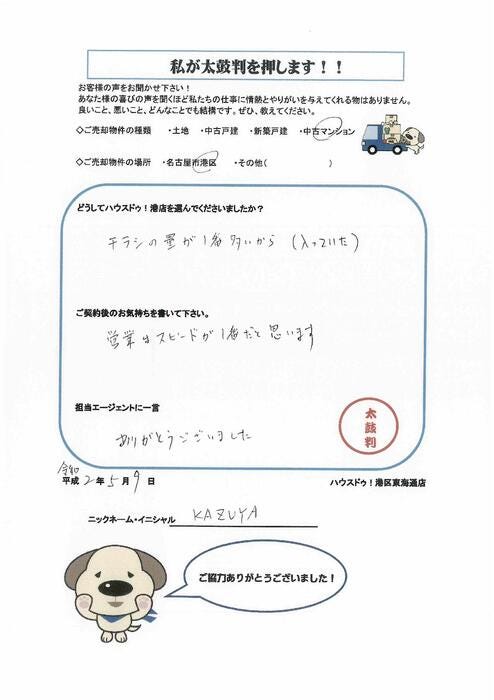 私が太鼓判を押します！！
お客様の声をお聞かせ下さい！
あなた様の喜びの声を聞くほど私たちの仕事に情熱とやりがいを与えてくれる物はありません。
良いこと、悪いこと、どんなことでも結構です。ぜひ、教えてください。
◇ご売却物件の種類　・土地　・中古戸建　・新築戸建　・中古マンション
◇ご売却物件の場所　・名古屋市港区　・その他（　　　　　　）
どうしてハウスドゥ！港店を選んでくださいましたか？
チラシの量が1番多いから（入っていた）
ご契約後のお気持ちを書いて下さい。
営業はスピードが1番だと思います
担当エージェントに一言
ありがとうございました
太鼓判
令和
平成 2 年 5 月 9 日
ハウスドゥ！港区東海通店
ニックネーム・イニシャル KAZUYA
ご協力ありがとうございました！